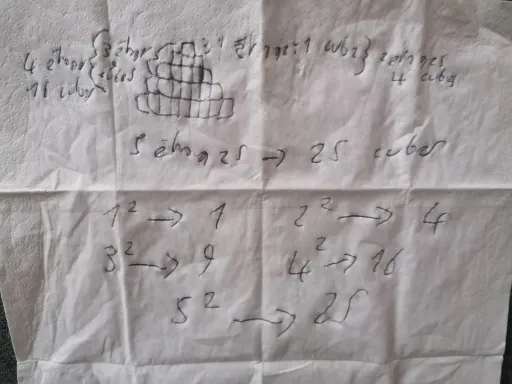 4 étages { 3 étages { 1 étage : 1 cube } 2 étages
16 cubes 4 cubes
5 étages → 25 cubes
1² → 1 2² → 4
3² → 9 4² → 16
5² → 25